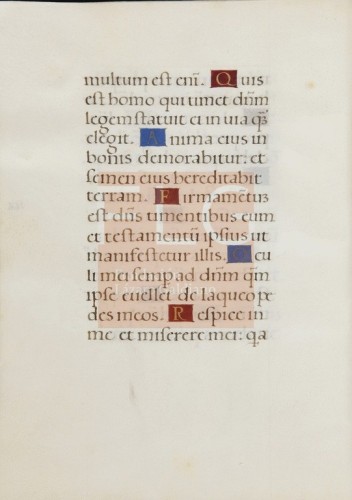 multum est em̄. Quis
est homo qui timet dn̄m
legem statuit ei in via qā
elegit. Anima eius in
bonis demorabitur: et
semen eius hereditabit
terram. Firmamētū
est dn̄s timentibus eum
et testamentū ipsius ut
manifestetur illis. Ocu
li mei semp ad dn̄m qm̄
ipse evellet de laqueo pe
des meos. Respice in
me et miserere mei: qa